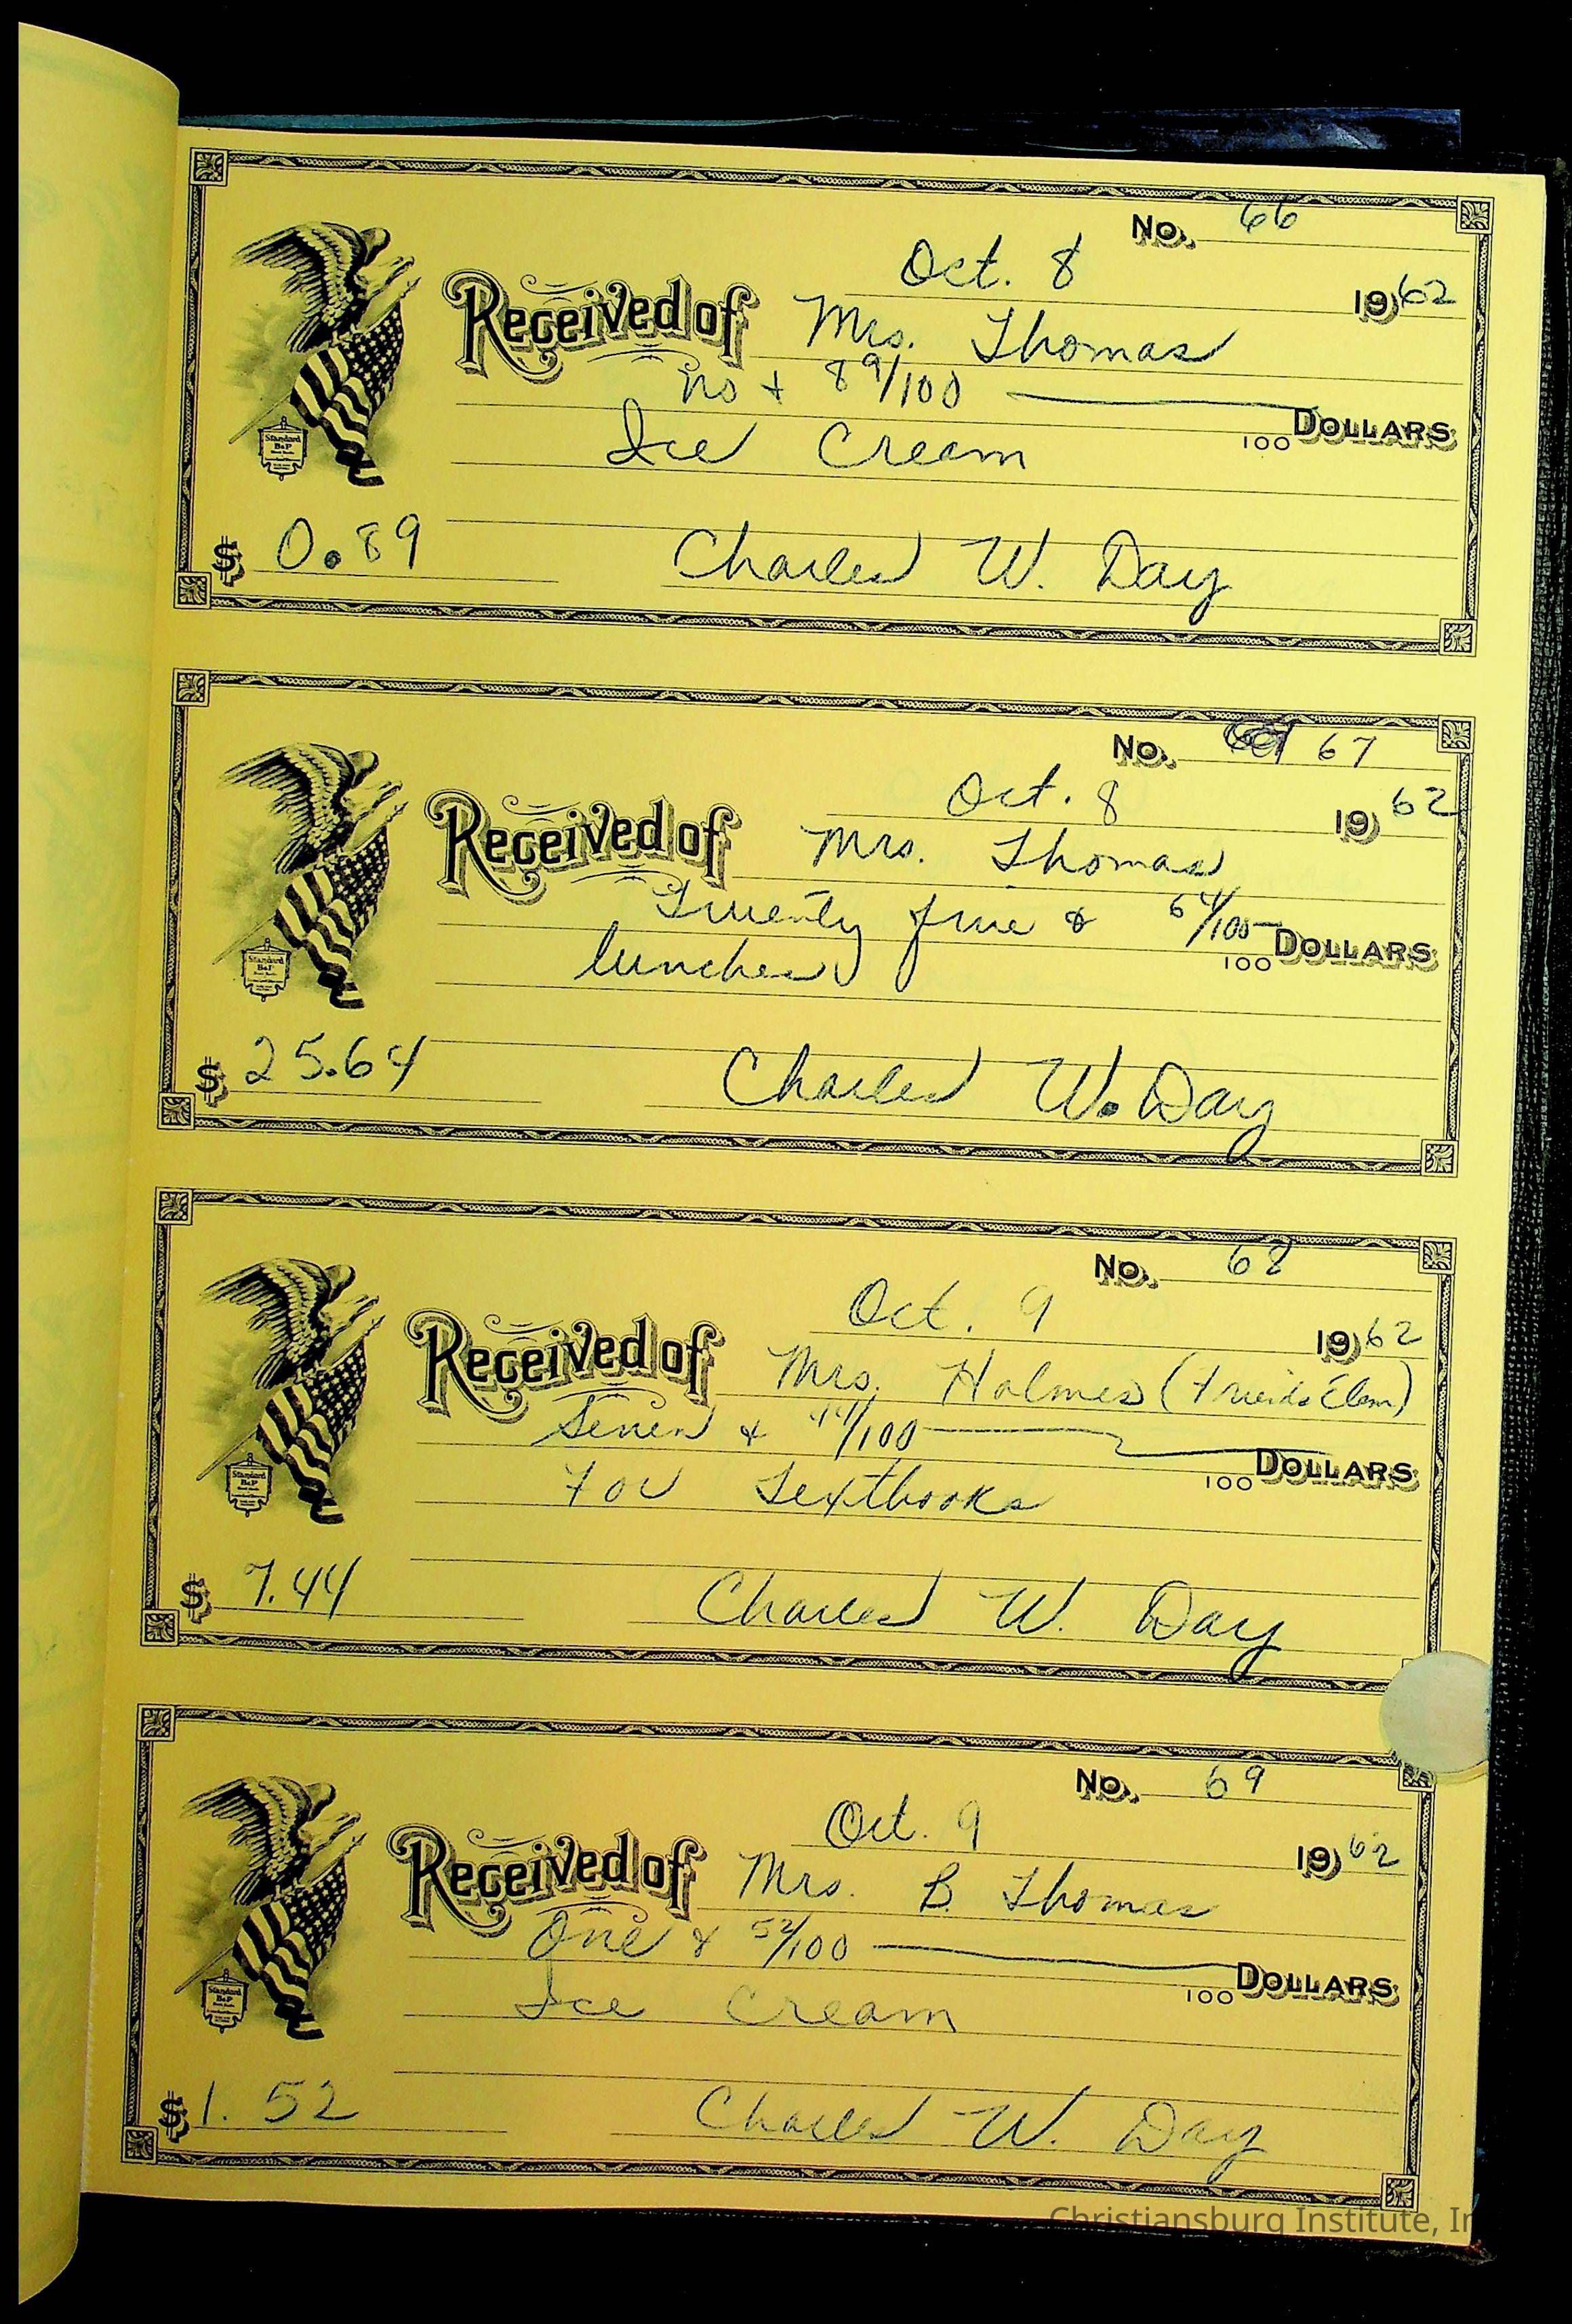 No. 66
Oct. 8 1962
Received of Mrs. Thomas
no + 89/100 DOLLARS
100
Ice Cream
$ 0.89 Charles W. Day
Standard B&P
No. 67
Oct. 8 1962
Received of Mrs. Thomas
Twenty five & 64/100 DOLLARS
100
lunches
$ 25.64 Charles W. Day
Standard B&P
No. 68
Oct. 9 1962
Received of Mrs. Holmes (Friends Elem)
Seven & 44/100 DOLLARS
100
for Textbooks
$ 7.44 Charles W. Day
Standard B&P
No. 69
Oct. 9 1962
Received of Mrs. B. Thomas
One & 52/100 DOLLARS
100
Ice Cream
$ 1.52 Charles W. Day
Standard B&P
Christiansburg Institute, In